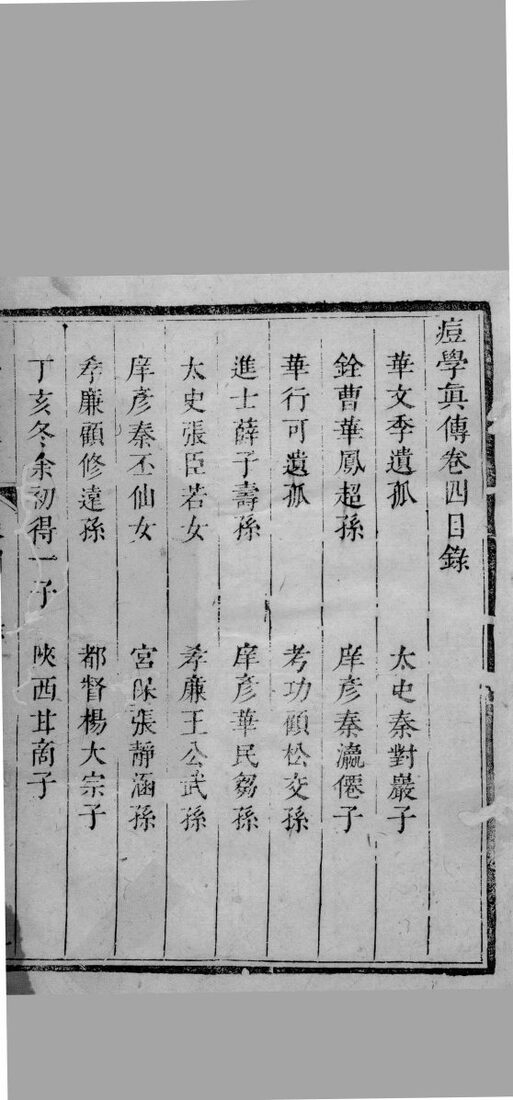 痘學眞傳卷四目錄
華文季遺孤　太史秦對巖子
銓曹華鳳超孫　庠彥秦瀛僊子
華行可遺孤　考功顧松交孫
進士薛子壽孫　庠彥華民芻孫
太史張臣若女　孝廉王公武孫
庠彥秦丕仙女　宮保張靜涵孫
孝廉顧修遠孫　都督楊大宗子
丁亥冬余初得一子　陝西甘商子